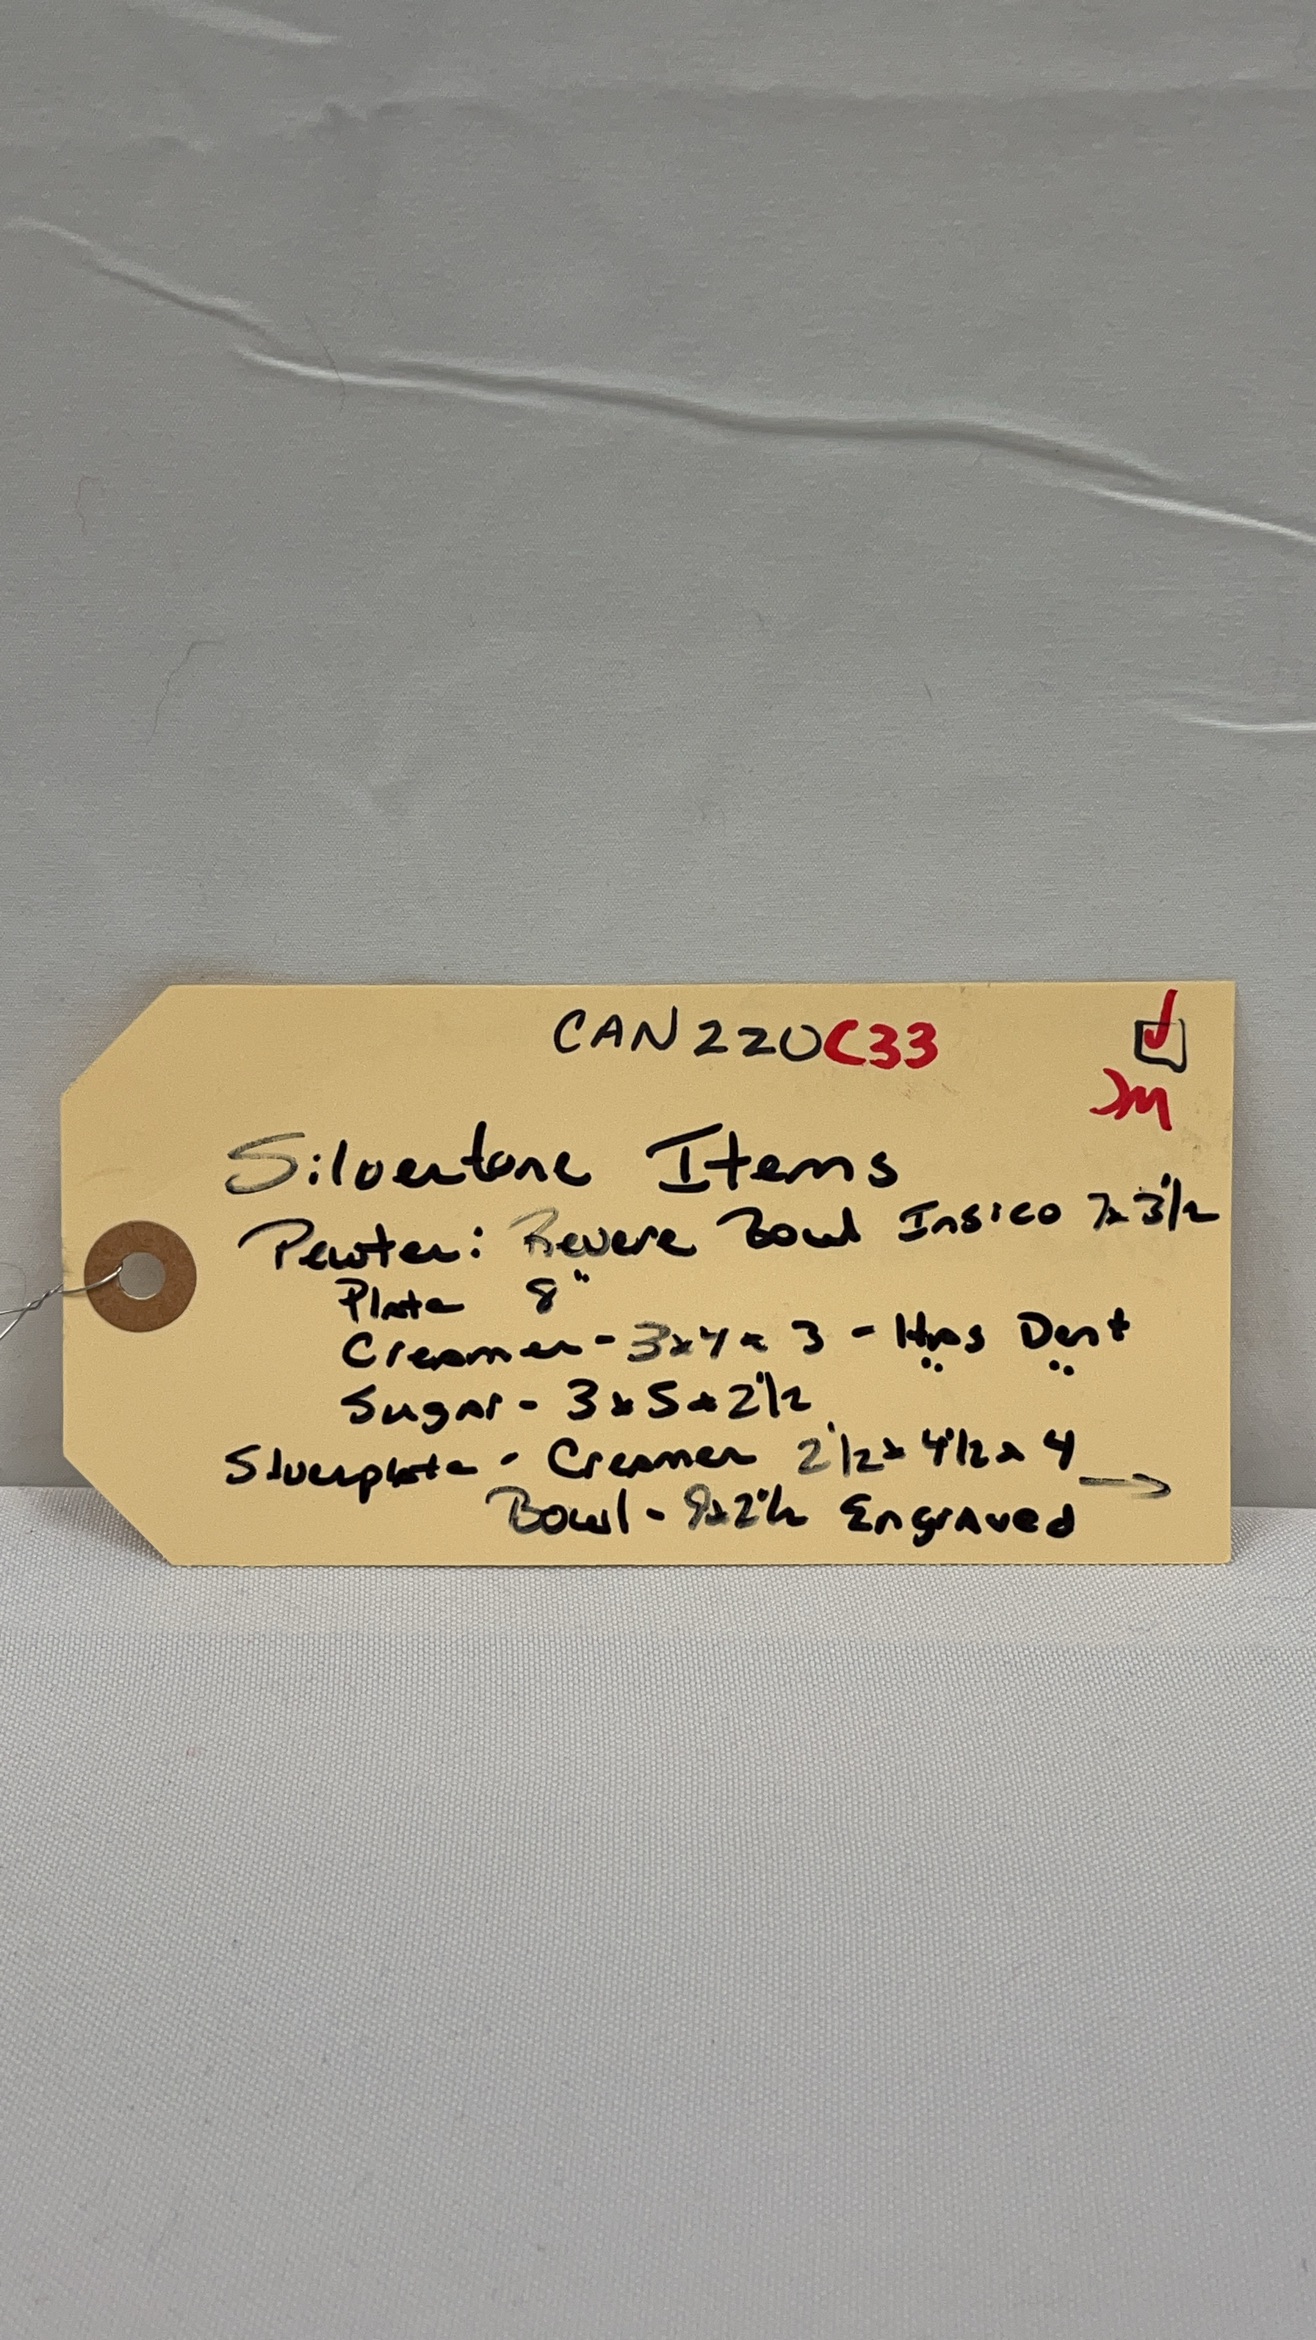 CAN220C33
JM
Silvertone Items
Pewter: Revere Bowl Insico 7x3½
Plate 8"
Creamer - 3x4x3 - Has Dent
Sugar - 3x5x2½
Silverplate - Creamer 2½x4½x4 →
Bowl - 9x2½ Engraved